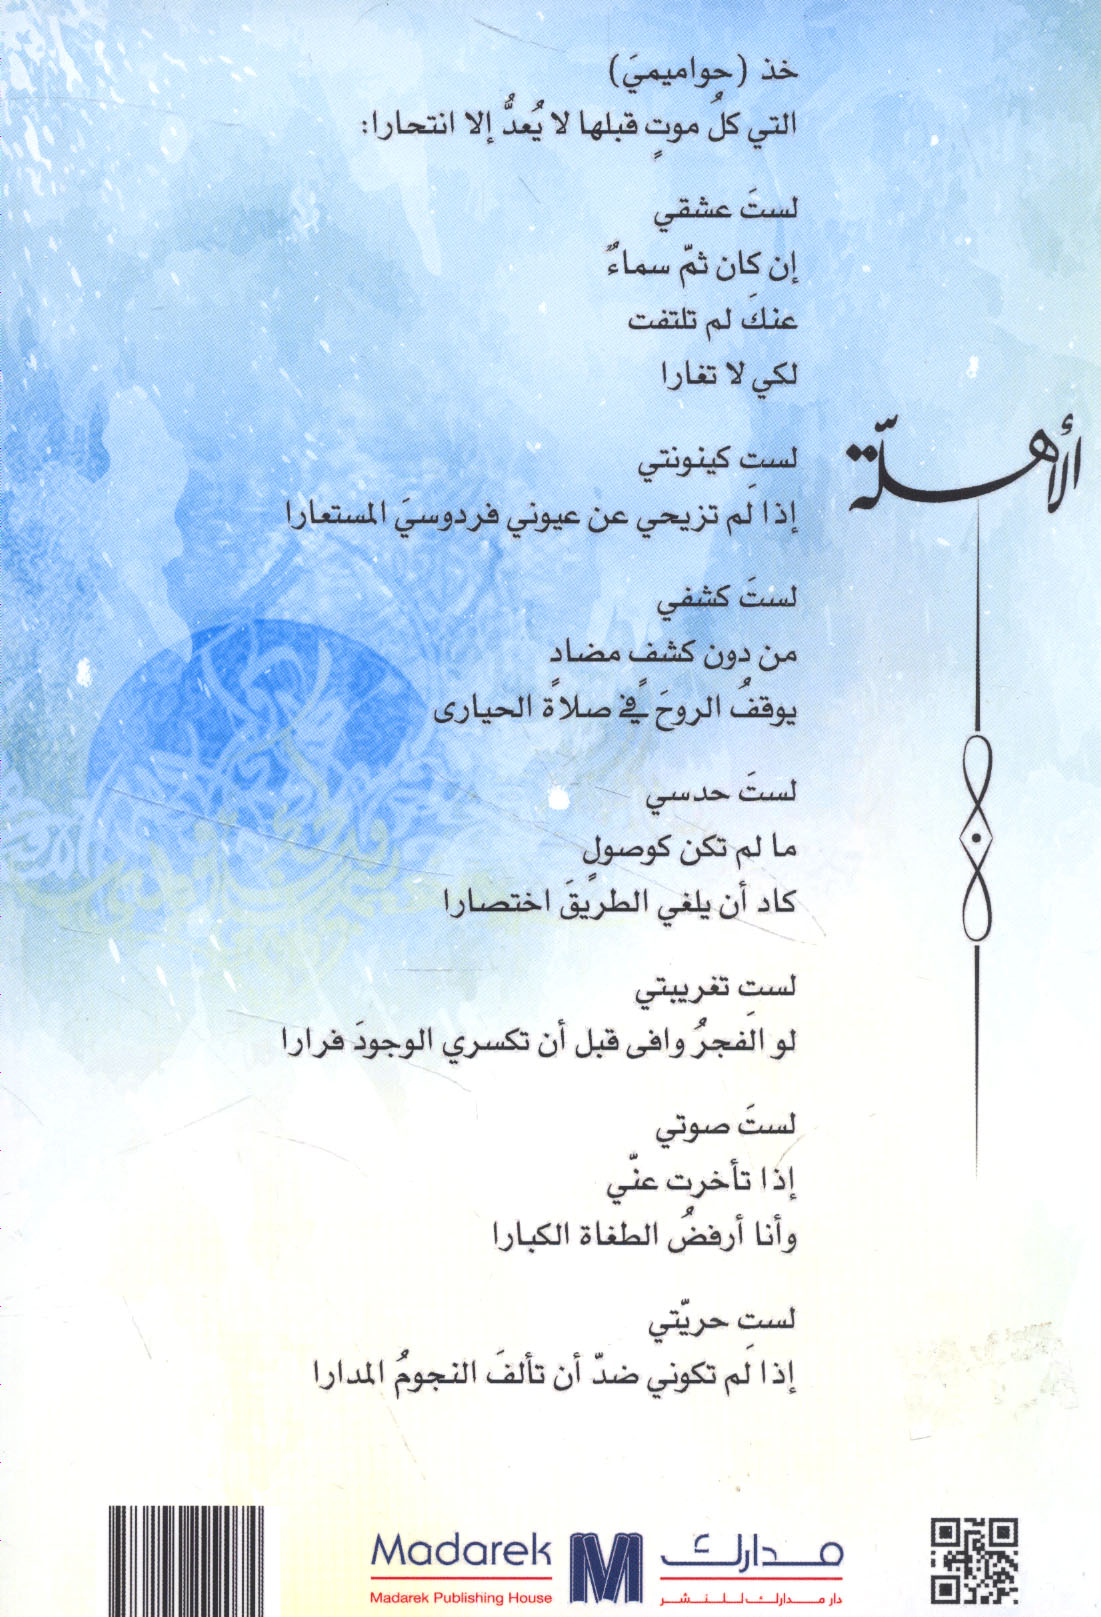 خذ (حواميميَ)
التي كلُ موتٍ قبلها لا يُعدُّ إلا انتحارا:
لستَ عشقي
إن كان ثمّ سماءٌ
عنكَ لم تلتفت
لكي لا تغارا
لستِ كينونتي
إذا لم تزيحي عن عيوني فردوسيَ المستعارا
لستَ كشفي
من دون كشفٍ مضادٍ
يوقفُ الروحَ في صلاةِ الحيارى
لستَ حدسي
ما لم تكن كوصولٍ
كاد أن يلغي الطريقَ اختصارا
لستِ تغريبتي
لو الفجرُ وافى قبل أن تكسري الوجودَ فرارا
لستَ صوتي
إذا تأخرت عنّي
وأنا أرفضُ الطغاة الكبارا
لستِ حريّتي
إذا لم تكوني ضدّ أن تألفَ النجومُ المدارا
الأهلّة
مدارك
دار مدارك للنشر
Madarek
Madarek Publishing House